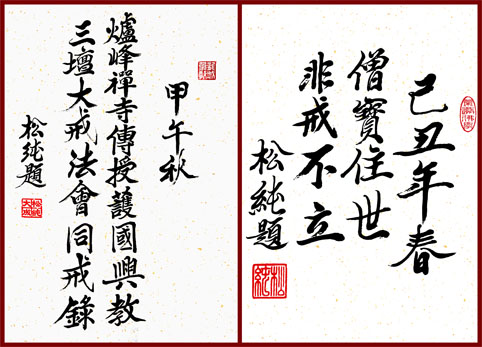 己丑年春
僧寳住世
非戒不立
松純題
松純
甲午秋
爐峰禪寺傳授護國興教
三壇大戒法會同戒錄
松純題